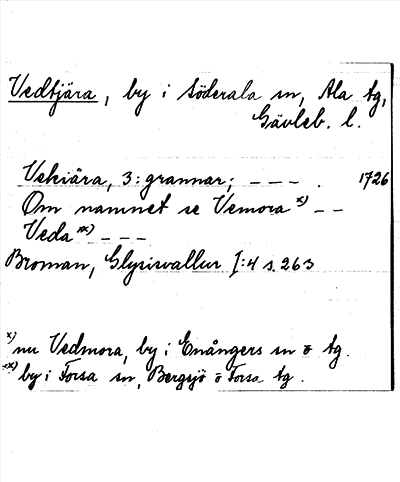 Vedtjära, by i Söderala sn, Ala tg,
Gävleb. l.
Vekiära, 3: grannar; – – – . 1726
Om namnet se Vemora x) – –
Veda xx) – – –
Broman, Glysisvallur I:4 s. 263
x) nu Vedmora, by i Enångers sn o tg.
xx) by i Forsa sn, Bergsjö o Forsa tg.